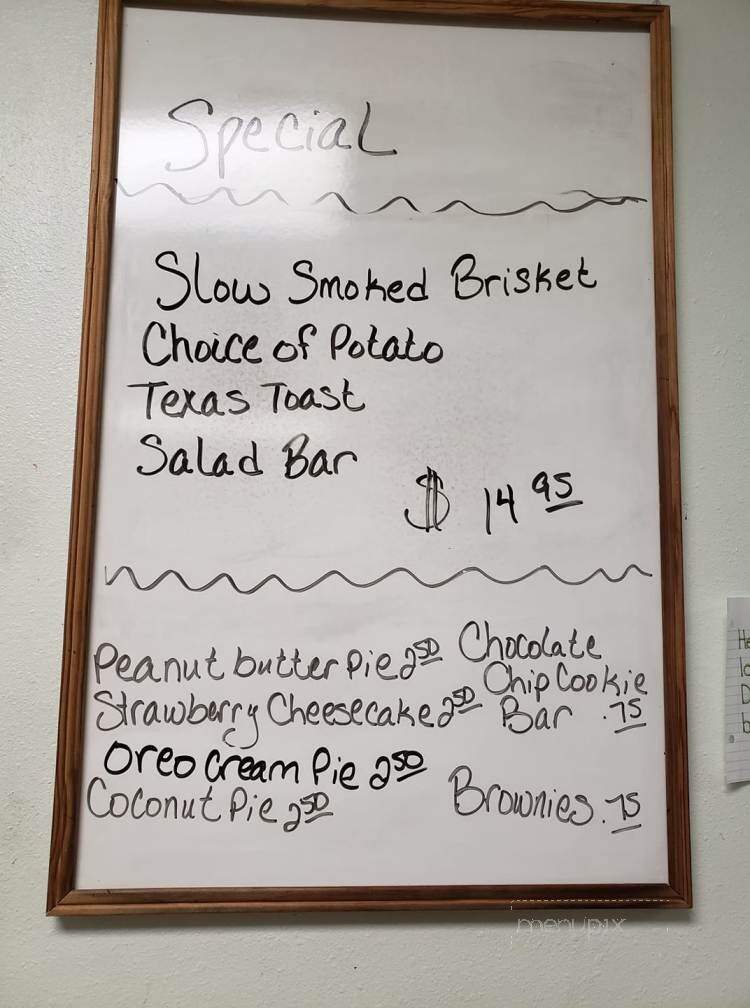 Special
Slow Smoked Brisket
Choice of Potato
Texas Toast
Salad Bar
$ 14 95
Peanut butter Pie 2 50
Strawberry Cheesecake 2 50
Oreo Cream Pie 2 50
Coconut Pie 2 50
Chocolate
Chip Cookie
Bar .75
Brownies .75
He
D
b
menupix